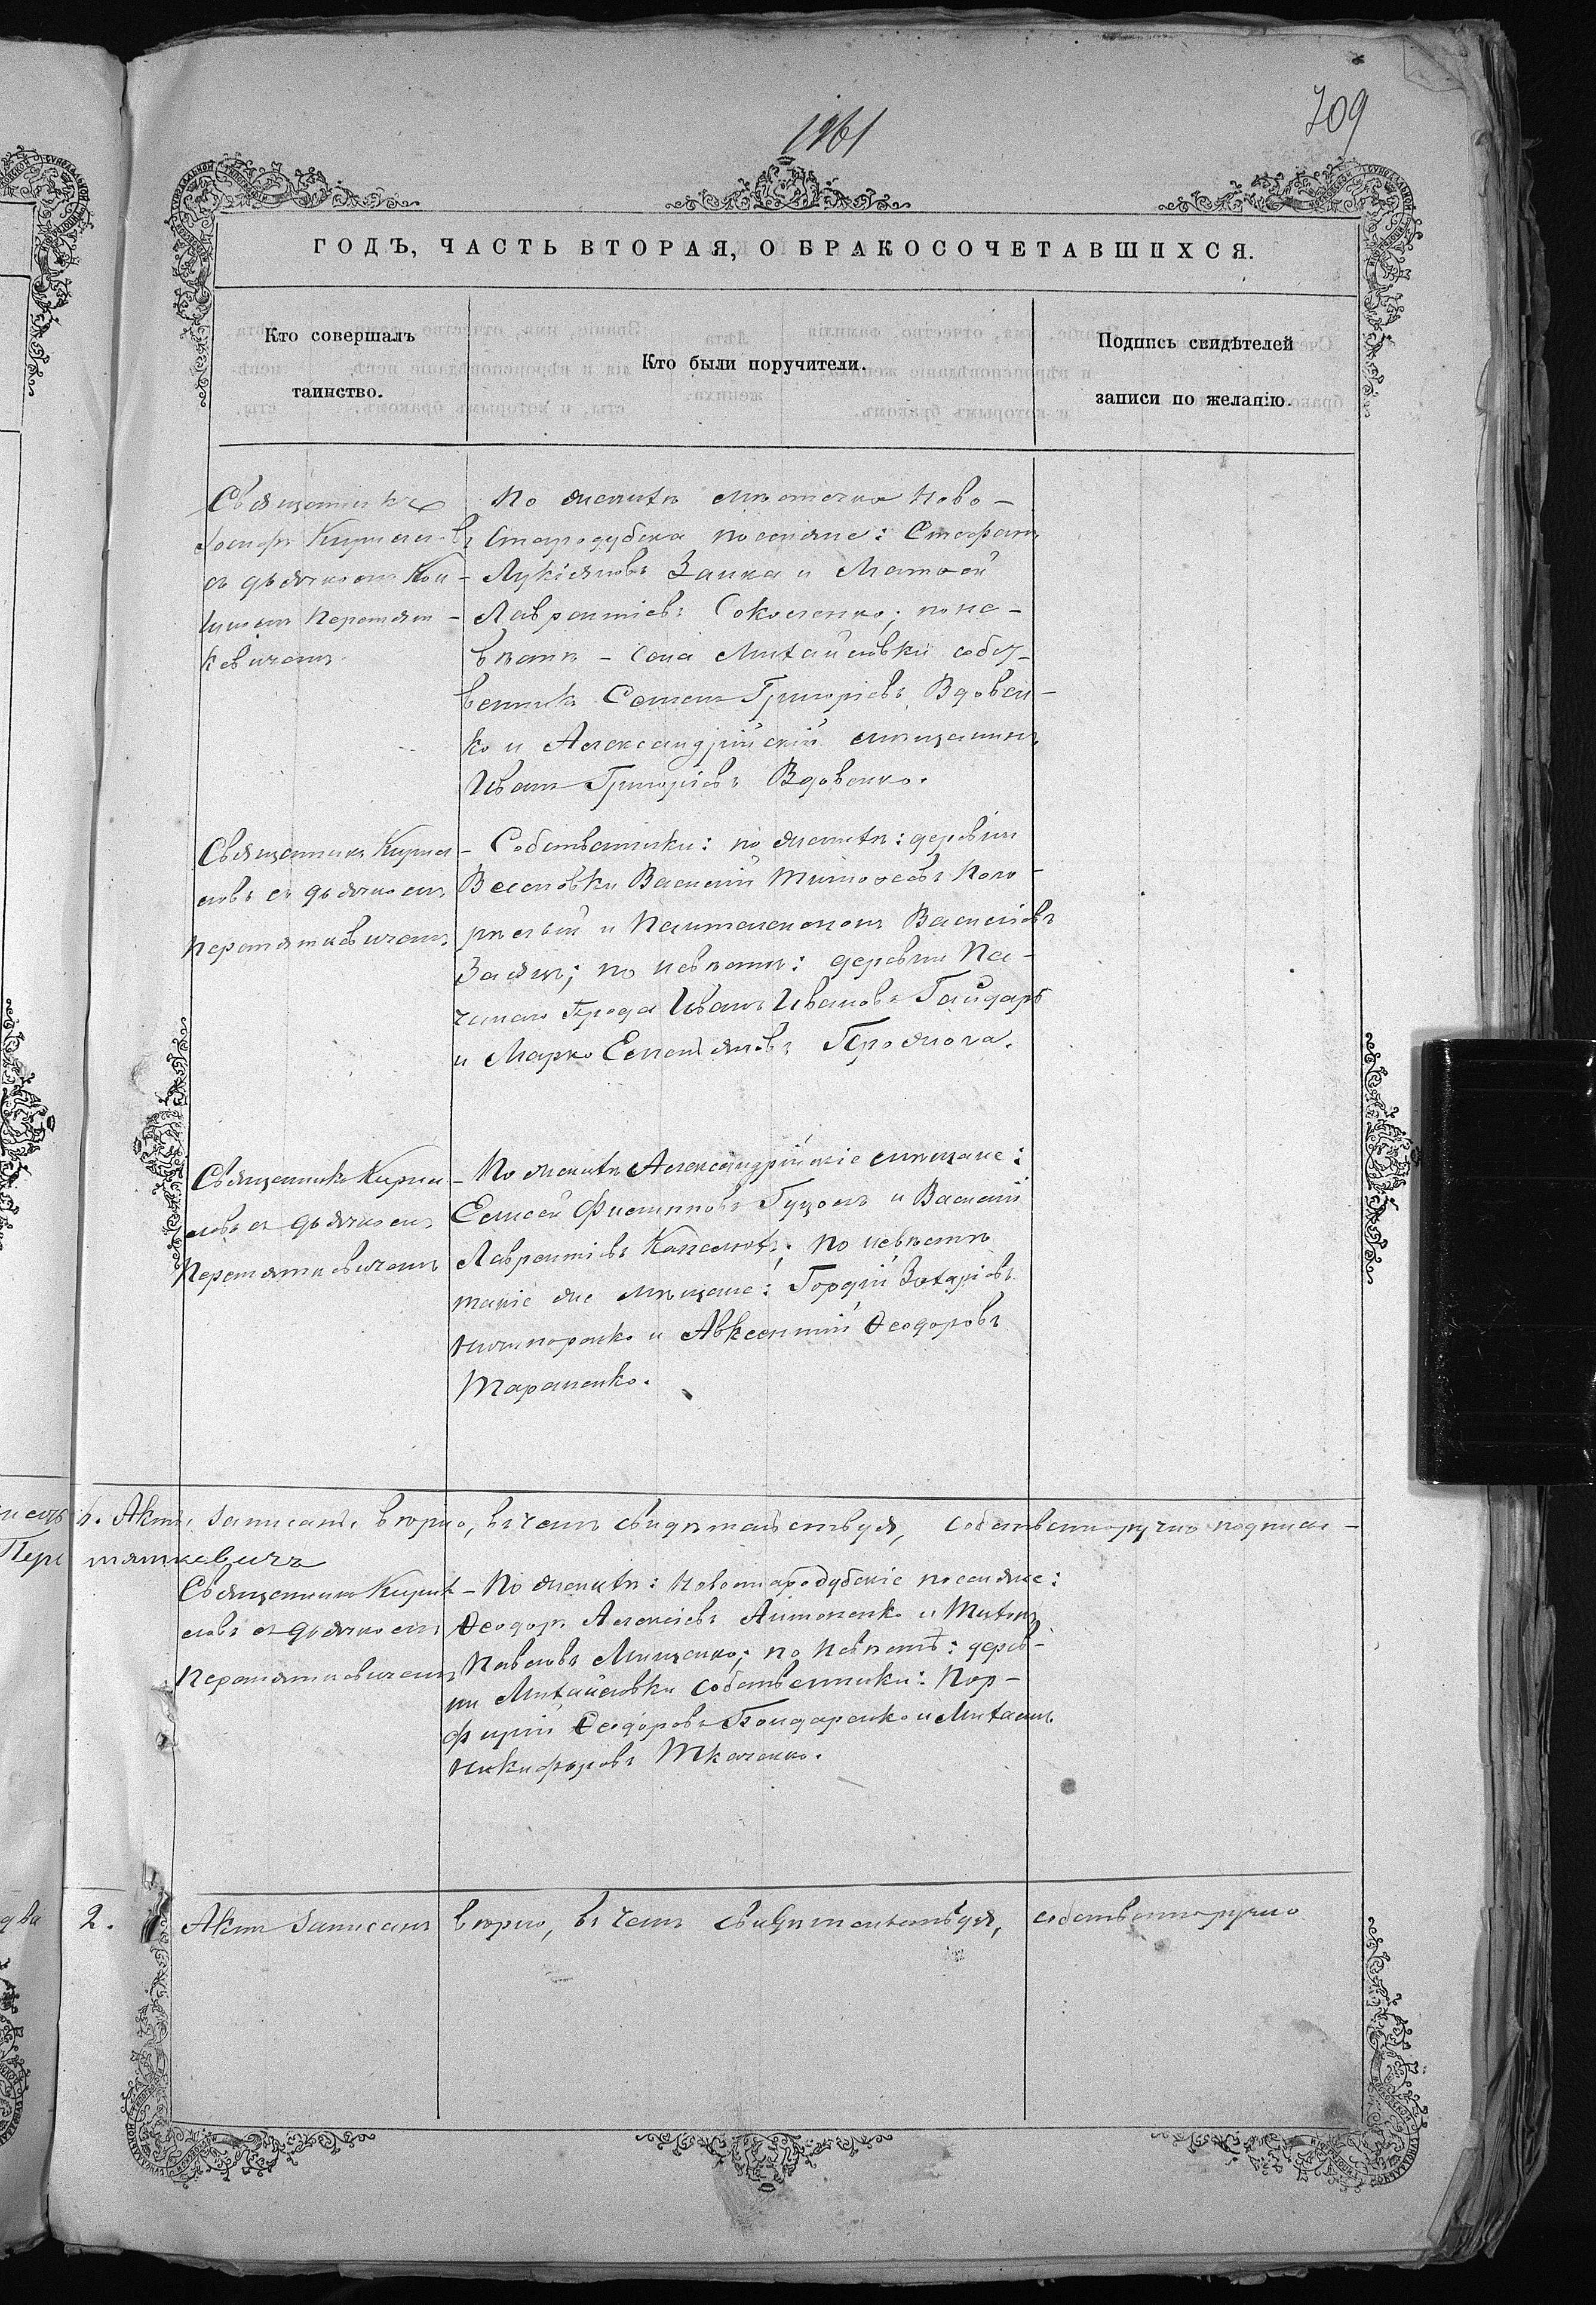 709
1861
ГОДЪ, ЧАСТЬ ВТОРАЯ, О БРАКОСОЧЕТАВШИХСЯ.
Кто совершалъ
таинство.
Кто были поручители.
Подпись свидѣтелей
записи по желанію.
Священникъ
Іосифъ Кирилловъ
съ дьячкомъ
Перетят-
кевичемъ
По женихѣ мѣстечка Ново-
стародубска поселяне: Стефанъ
Лукіяновъ Заика и Матѳей
Лаврентіевъ Соколенко; по не-
вѣстѣ - села Михайловки собст-
венникъ Семенъ Григоріевъ Вдовен-
ко и Александрійскій мѣщанинъ
Иванъ Григоріевъ Вдовенко.
Священникъ Кирил-
ловъ съ дьячкомъ
Перетяткевичемъ.
Собственники: по женихѣ: деревни
Веселовки Василій Тимоѳеевъ Пого-
рѣлый и Пантелеимонъ Василіевъ
Заяцъ; по невѣстѣ: деревни
Иванъ Ивановъ Гайдарь
и Марко Емельяновъ
Священникъ Кирил-
ловъ съ дьячкомъ
Перетяткевичемъ
По женихѣ Александрійскіе мѣщане:
Елисей Филипповъ Гуцолъ и Василій
Лаврентіевъ; по невѣстѣ
такіе же мѣщане: Гордій Захаріевъ
Ничипоренко и Авксентій Ѳеодоровъ
Тараненко.
Акты записаны вѣрно, въ чемъ свидѣтельствуя, собственноручно подписал-
тяткевичъ
Священникъ Кирил-
ловъ съ дьячкомъ
Перетяткевичемъ
По женихѣ: Новостародубскіе поселяне:
Ѳеодоръ Алексіевъ Антоненко и Титъ
Павловъ Мищенко; по невѣстѣ: дерев-
ни Михайловки собственники: Пор-
фирій Ѳеодоровъ Бондаренко и Михаилъ
Никифоровъ Ткаченко.
два 2. Актъ записанъ вѣрно, въ чемъ свидѣтельствуя, собственноручно